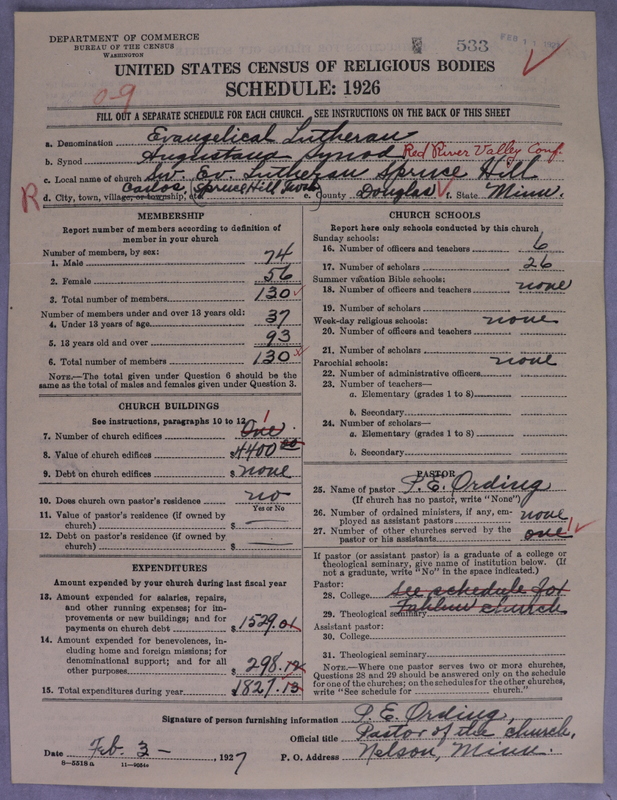 DEPARTMENT OF COMMERCE
BUREAU OF THE CENSUS
WASHINGTON
533
FEB 11 192
UNITED STATES CENSUS OF RELIGIOUS BODIES
SCHEDULE: 1926
0-9
FILL OUT A SEPARATE SCHEDULE FOR EACH CHURCH. SEE INSTRUCTIONS ON THE BACK OF THIS SHEET
a. Denomination Evangelical Lutheran
b. Synod Augustana Synod Red River Valley Conf.
c. Local name of church Sw. Ev. Lutheran Spruce Hill
R d. City, town, village, or township, etc. Carlos, Spruce Hill Twsh) e. County Douglas f. State Minn.
MEMBERSHIP
Report number of members according to definition of
member in your church
Number of members, by sex:
1. Male 74
2. Female 56
3. Total number of members 130
Number of members under and over 13 years old:
4. Under 13 years of age 37
5. 13 years old and over 93
6. Total number of members 130
NOTE.—The total given under Question 6 should be the
same as the total of males and females given under Question 3.
CHURCH BUILDINGS
See instructions, paragraphs 10 to 12
7. Number of church edifices One 1
8. Value of church edifices $4400 00
9. Debt on church edifices $ none
10. Does church own pastor's residence no
Yes or No
11. Value of pastor's residence (if owned by
church) $ —
12. Debt on pastor's residence (if owned by
church) $ —
EXPENDITURES
Amount expended by your church during last fiscal year
13. Amount expended for salaries, repairs,
and other running expenses; for im-
provements or new buildings; and for
payments on church debt $1529.01
14. Amount expended for benevolences, in-
cluding home and foreign missions; for
denominational support; and for all
other purposes $298.12
15. Total expenditures during year $1827.13
CHURCH SCHOOLS
Report here only schools conducted by this church
Sunday schools:
16. Number of officers and teachers 6
17. Number of scholars 26
Summer vacation Bible schools:
18. Number of officers and teachers none
19. Number of scholars
Week-day religious schools: none
20. Number of officers and teachers
21. Number of scholars
Parochial schools: none
22. Number of administrative officers
23. Number of teachers—
a. Elementary (grades 1 to 8)
b. Secondary
24. Number of scholars—
a. Elementary (grades 1 to 8)
b. Secondary
PASTOR
25. Name of pastor P. E. Ording
(If church has no pastor, write "None")
26. Number of ordained ministers, if any, em-
ployed as assistant pastors none
27. Number of other churches served by the
pastor or his assistants one 1
If pastor (or assistant pastor) is a graduate of a college or
theological seminary, give name of institution below. (If
not a graduate, write "No" in the space indicated.)
Pastor:
28. College see schedule for
29. Theological seminary Fahlun church
Assistant pastor:
30. College
31. Theological seminary
NOTE.—Where one pastor serves two or more churches,
Questions 28 and 29 should be answered only on the schedule
for one of the churches; on the schedules for the other churches,
write "See schedule for church."
Signature of person furnishing information P. E. Ording,
Official title Pastor of the church,
Date Feb. 3 - , 1927 P. O. Address Nelson, Minn.
8-5518a